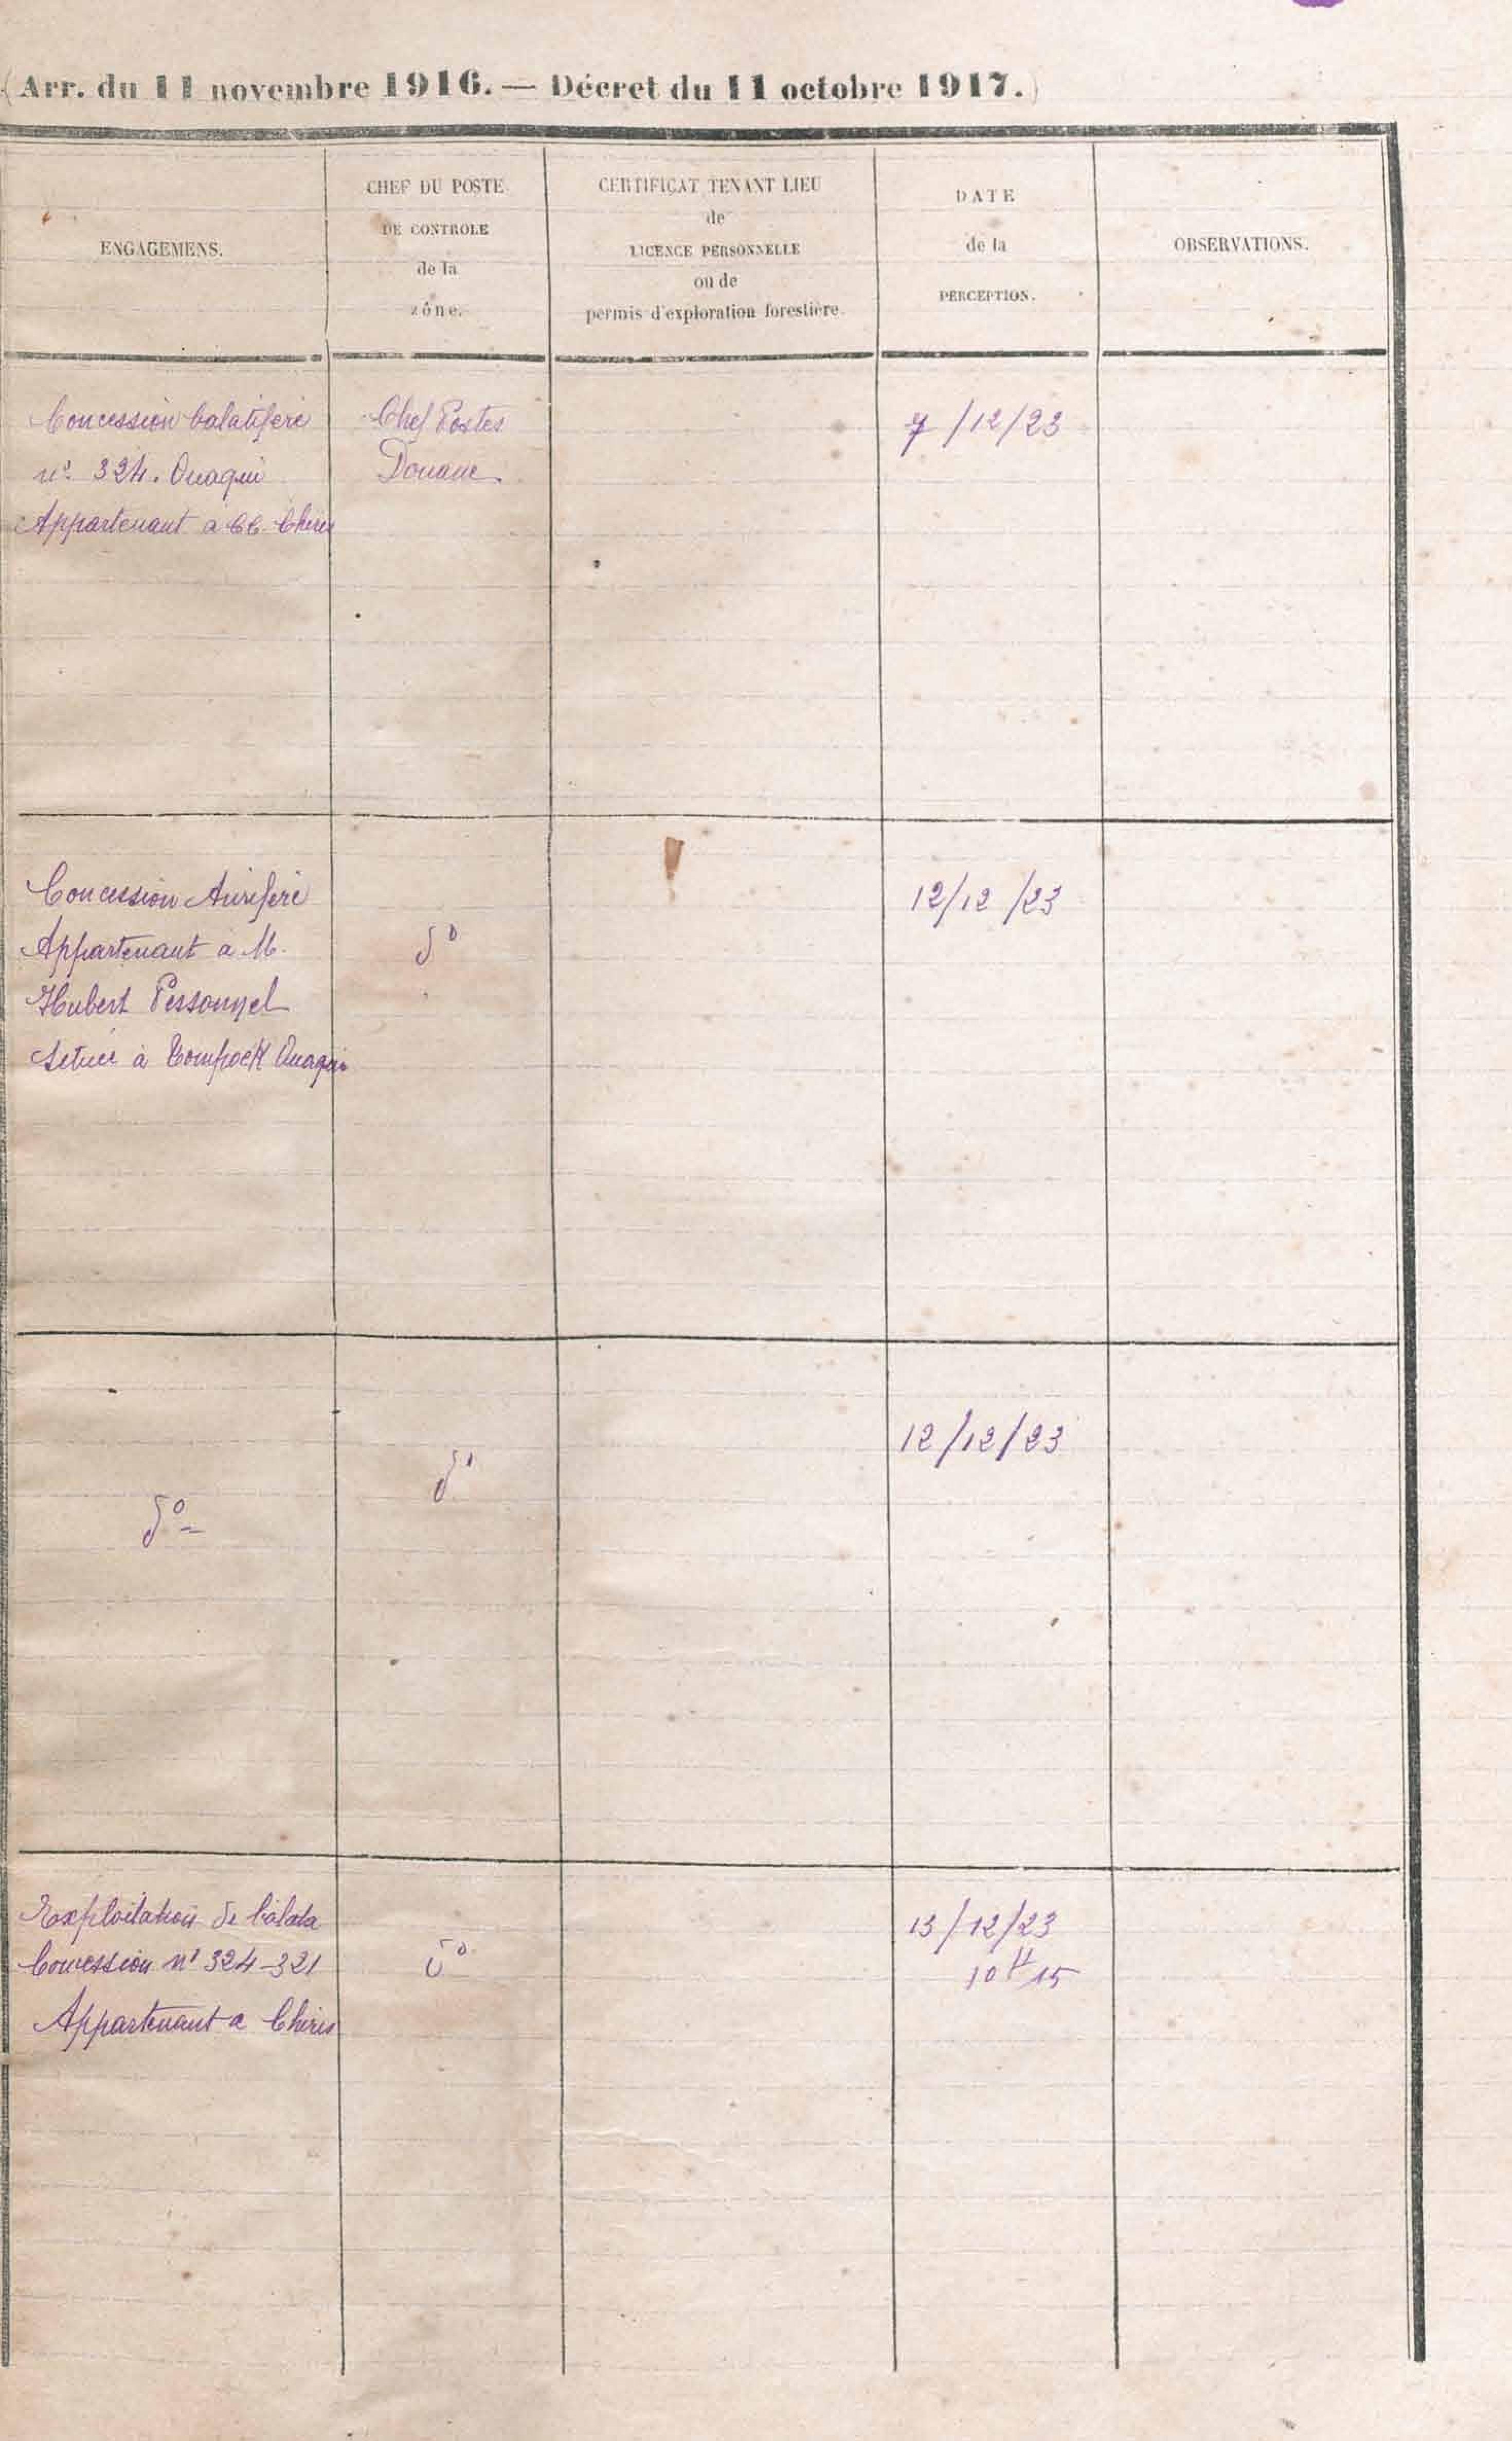 (Arr. du 11 novembre 1916. — Décret du 11 octobre 1917.)
ENGAGEMENS.
CHEF DU POSTE
DE CONTROLE
de la
zône.
CERTIFICAT TENANT LIEU
de
LICENCE PERSONNELLE
ou de
permis d'exploration forestière.
DATE
de la
PERCEPTION.
OBSERVATIONS.
Concession balatifère
n° 324. Ouaqui
Appartenant à CC. Chiris
Chef Postes
Douane
7/12/23
Concession Aurifère
Appartenant à M.
Hubert Pessonnel
située à Ouaqui
d°
12/12/23
d°
d°
12/12/23
Exploitation de balata
Concession n° 324-321
Appartenant a Chiris
d°
13/12/23
10H15